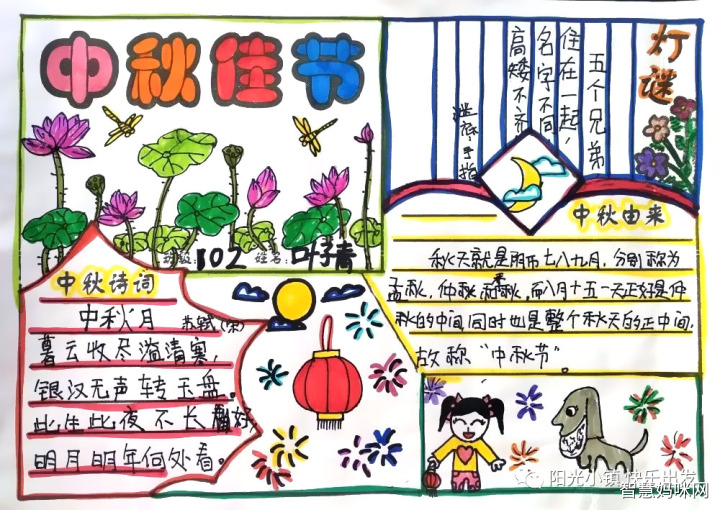 中秋佳节
班级:102 姓名:叶子青
灯谜
五个兄弟
住在一起,
名字不同
高矮不齐
谜底:手指
中秋由来
秋天就是阴历七八九月,分别称为
孟秋,仲秋,和季秋,而八月十五一天正好是仲
秋的中间,同时也是整个秋天的正中间,
故称“中秋节”。
中秋诗词
中秋月
苏轼(宋)
暮云收尽溢清寒,
银汉无声转玉盘。
此生此夜不长好
明月明年何处看。
阳光小镇快乐出发
智慧妈咪网